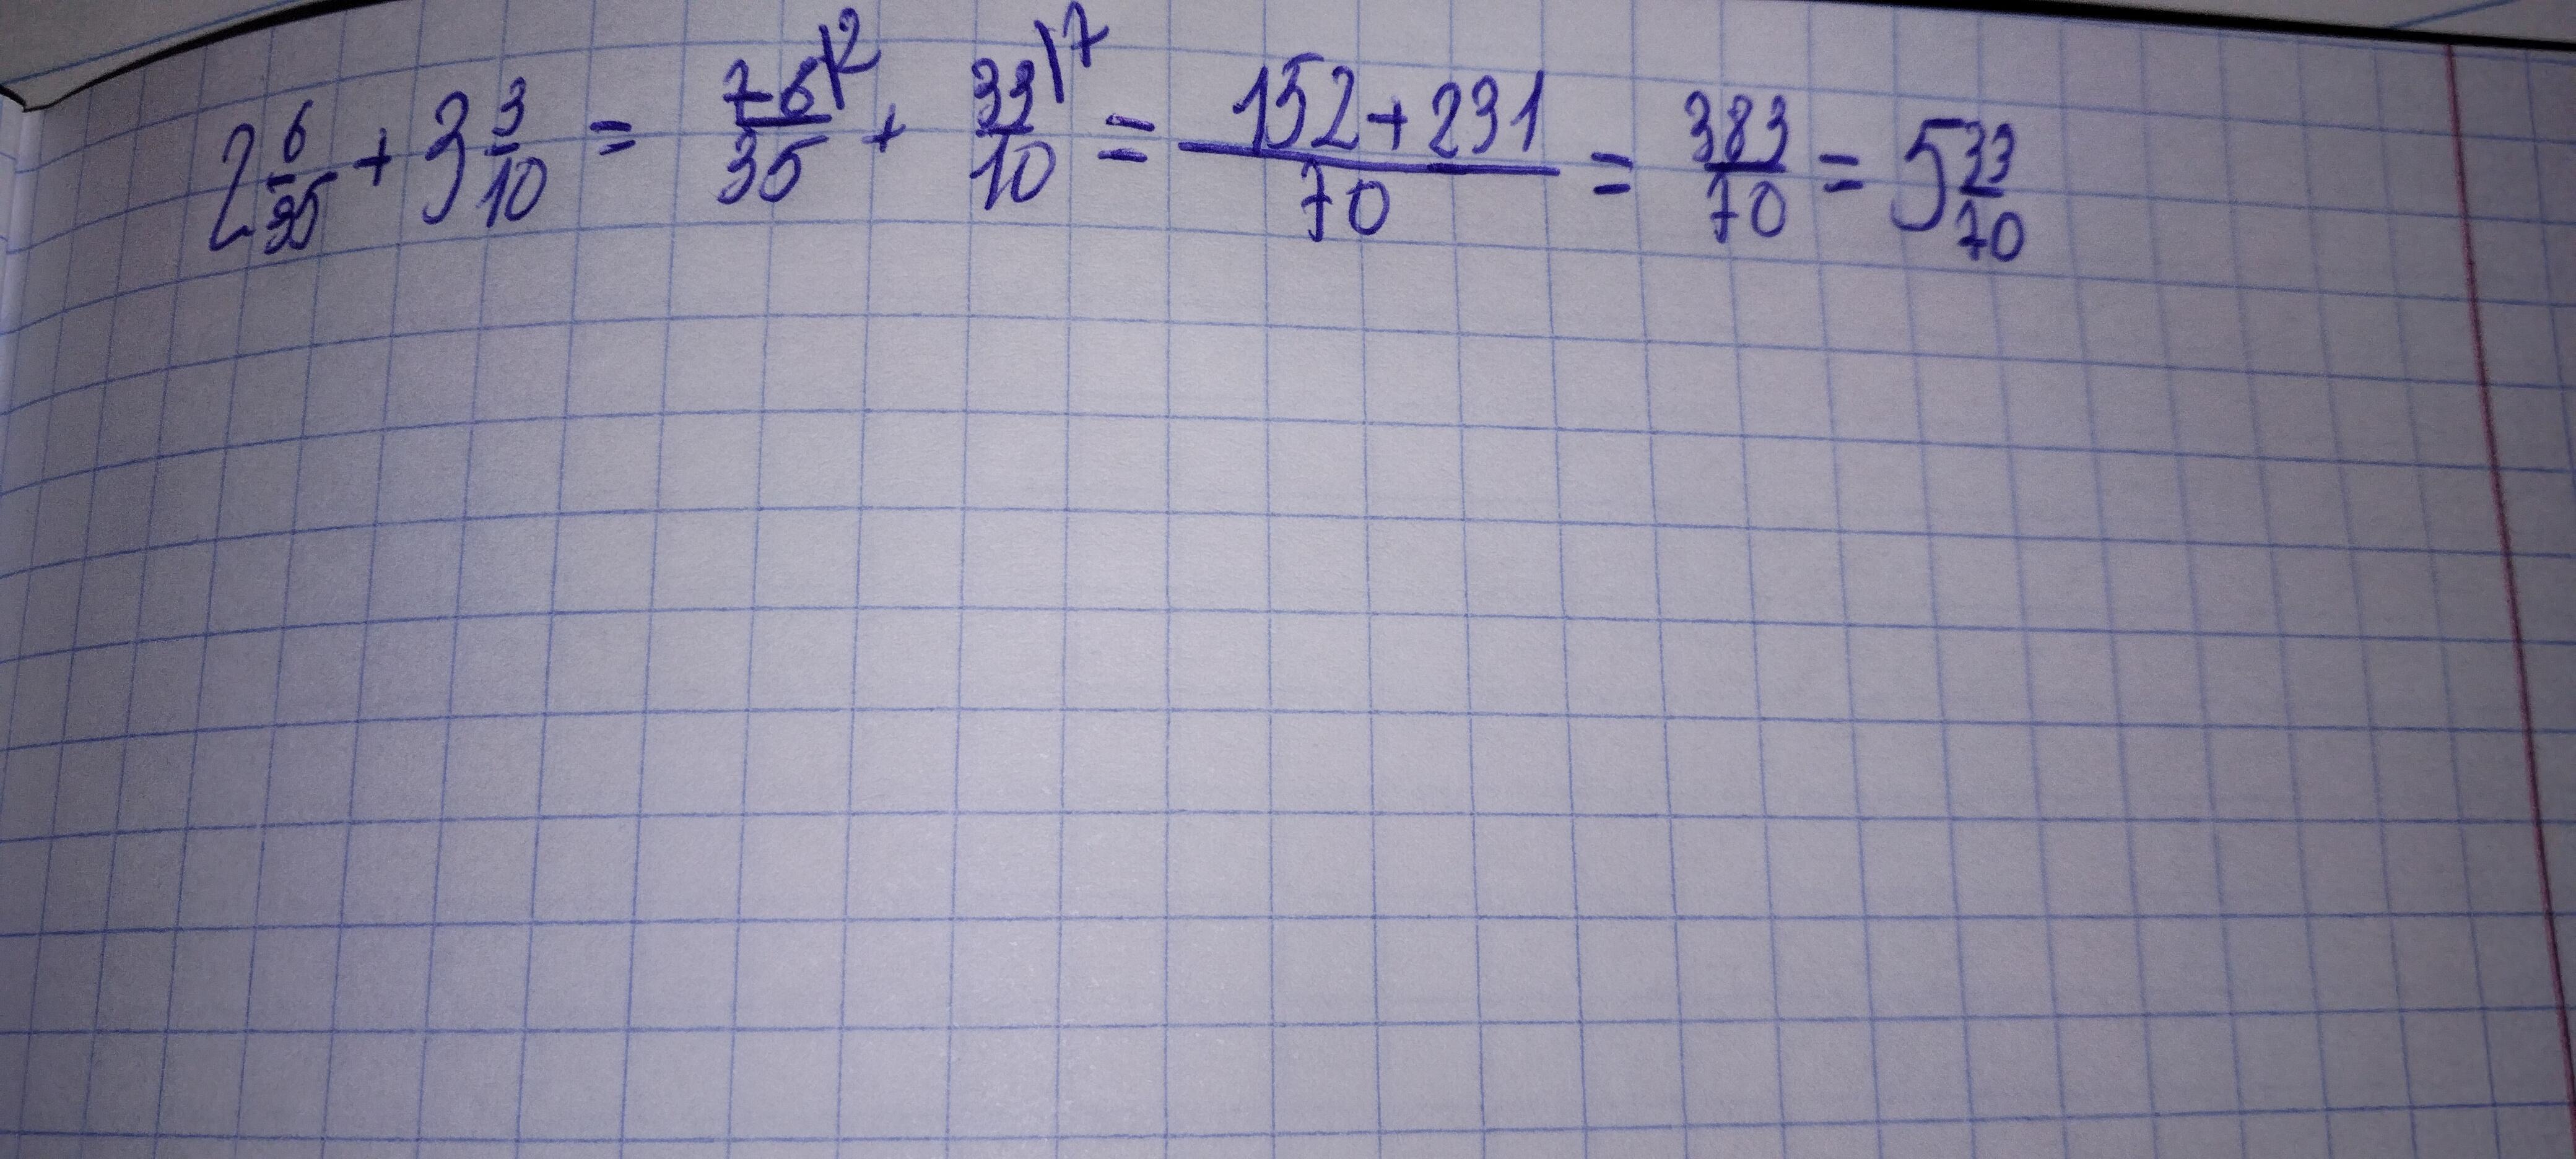 2 6/35 + 3 3/10 = 76\2/35 + 33\7/10 = 152+231/70 = 383/70 = 5 33/70